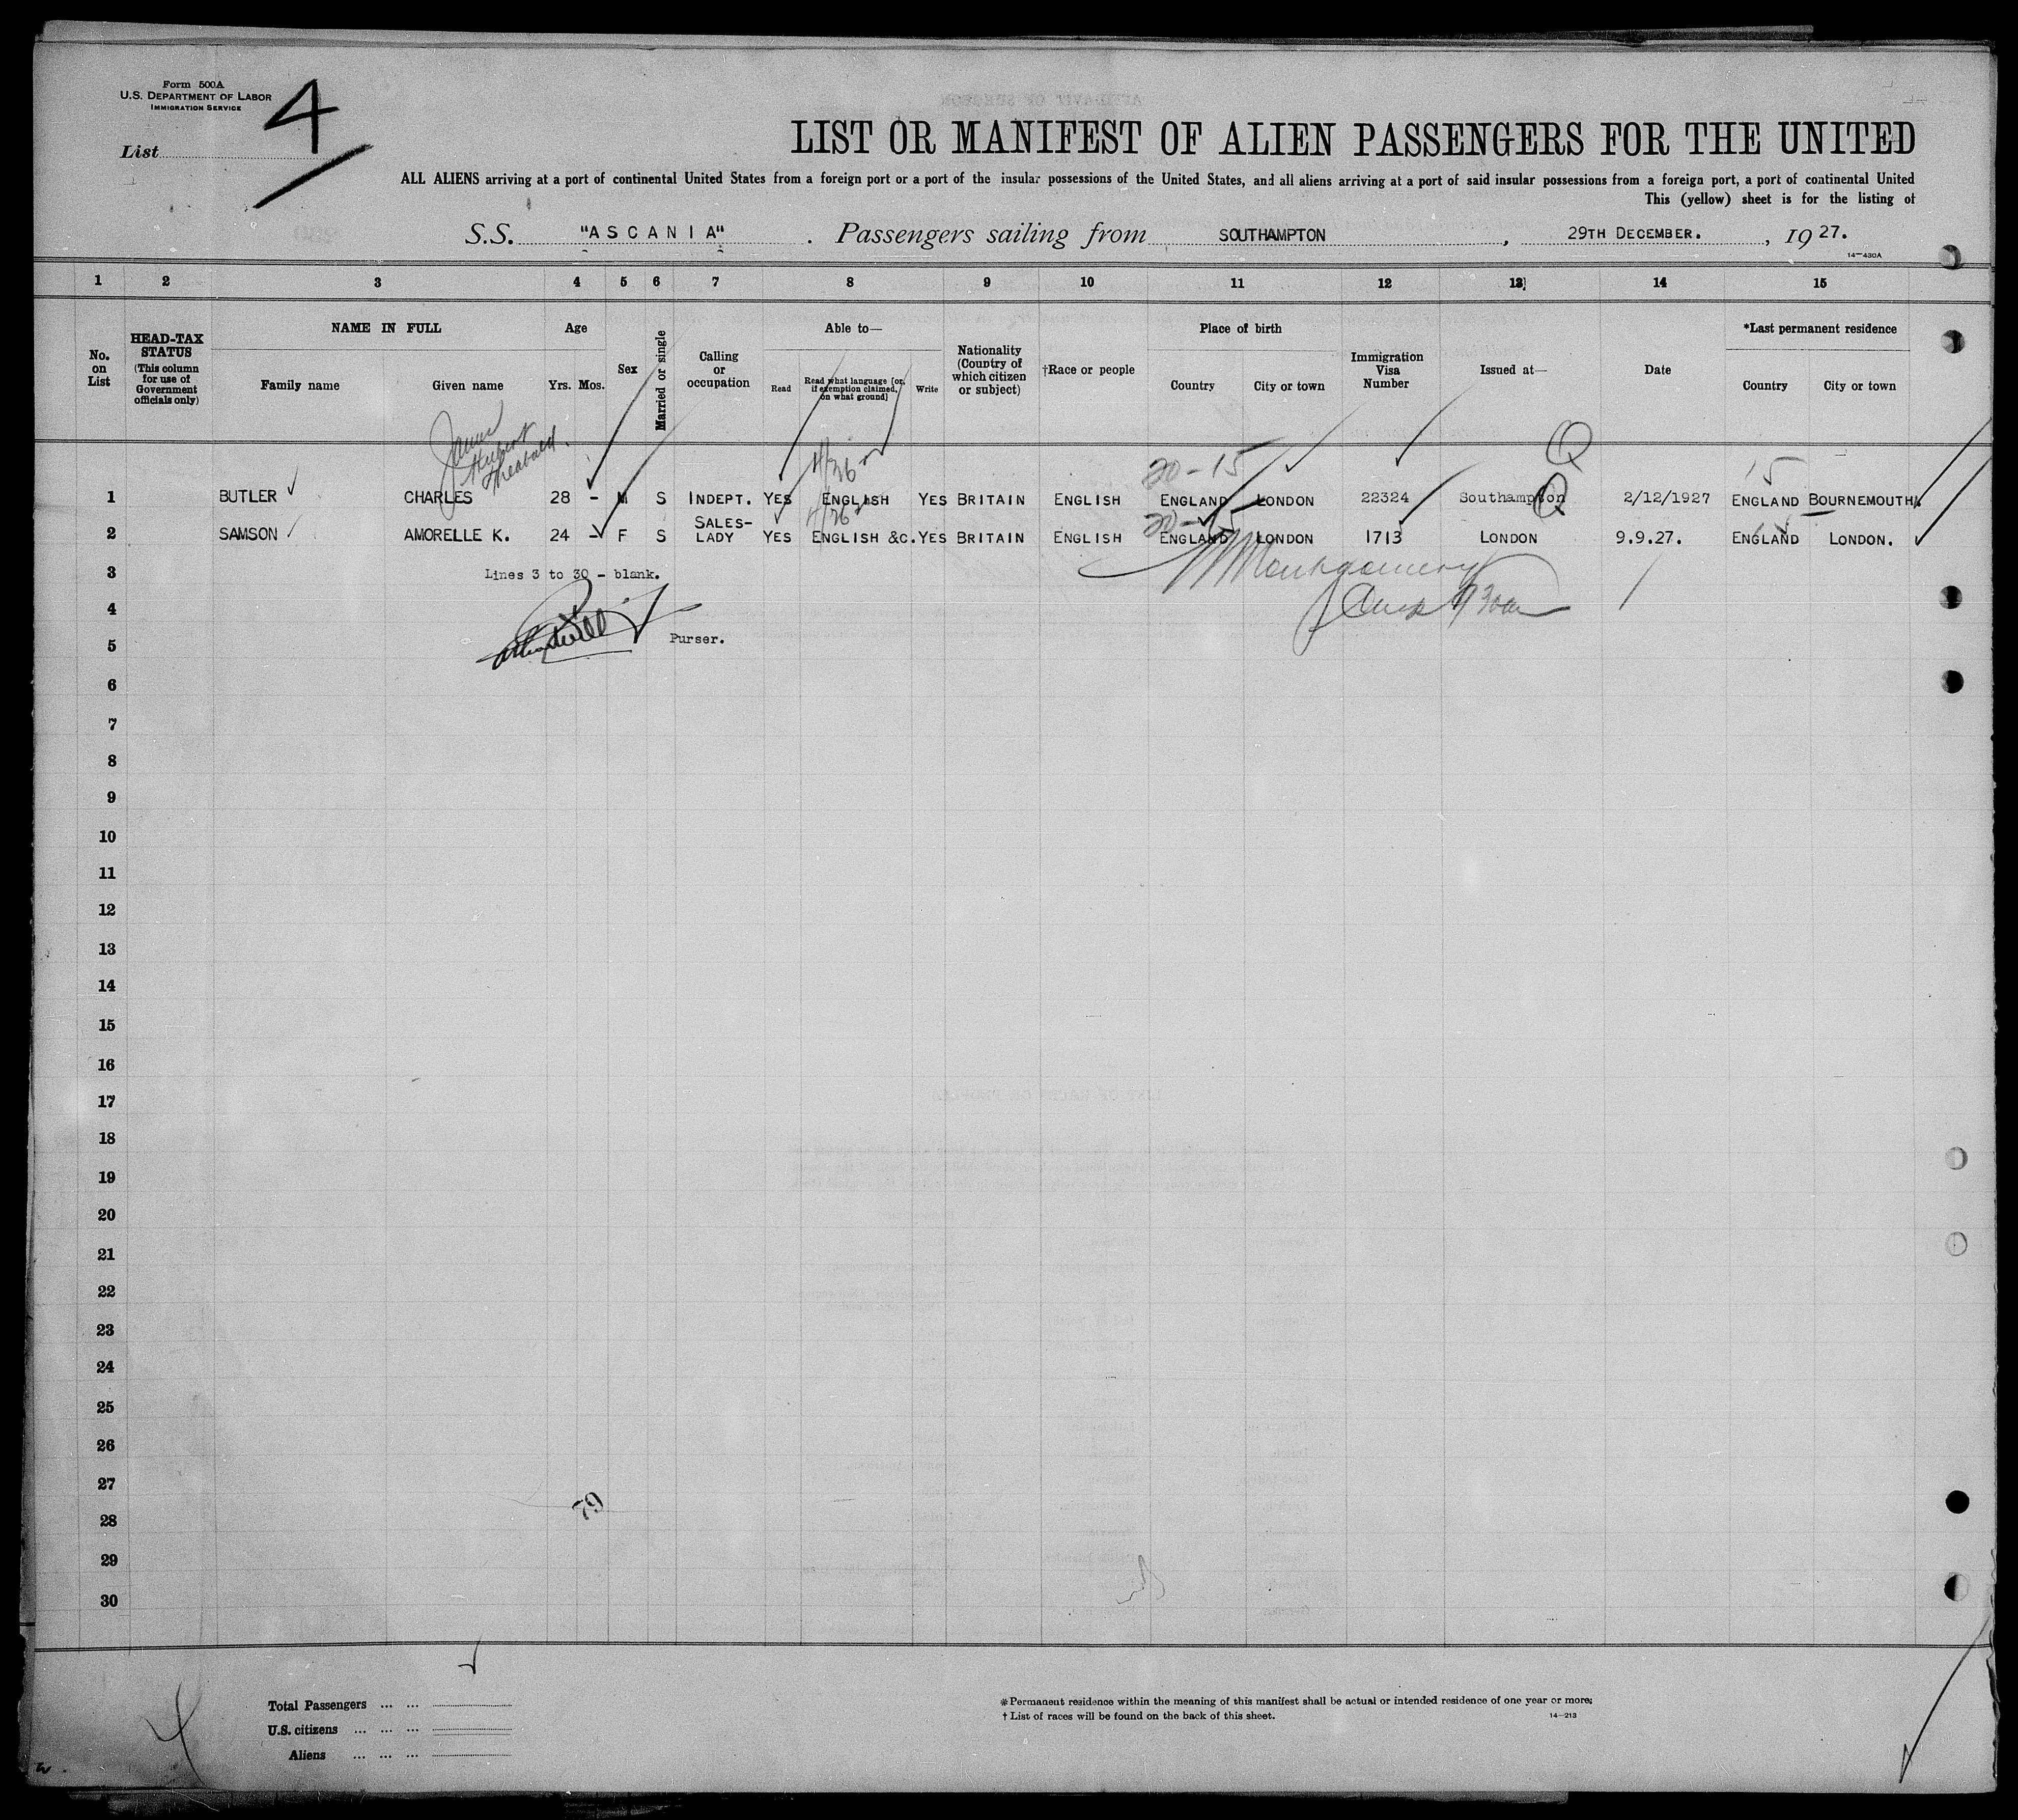 Form 500A
U.S. DEPARTMENT OF LABOR
IMMIGRATION SERVICE
4
List
LIST OR MANIFEST OF ALIEN PASSENGERS FOR THE UNITED
ALL ALIENS arriving at a port of continental United States from a foreign port or a port of the insular possessions of the United States, and all aliens arriving at a port of said insular possessions from a foreign port, a port of continental United
This (yellow) sheet is for the listing of
S.S. "ASCANIA". Passengers sailing from SOUTHAMPTON, 29TH DECEMBER., 1927.
14-430A
1 2 3 4 5 6 7 8 9 10 11 12 13 14 15
No. on List
HEAD-TAX STATUS (This column for use of Government officials only)
NAME IN FULL
Family name Given name
Age
Yrs. Mos.
Sex
Married or single
Calling or occupation
Able to—
Read
Read what language [or, if exemption claimed, on what ground]
Write
Nationality (Country of which citizen or subject)
†Race or people
Place of birth
Country City or town
Immigration Visa Number
Issued at—
Date
*Last permanent residence
Country City or town
James
Hubert
Theobald.
4/26
20-15
15
Q
1 BUTLER CHARLES 28 - M S INDEPT. YES ENGLISH YES BRITAIN ENGLISH ENGLAND LONDON 22324 Southampton 2/12/1927 ENGLAND BOURNEMOUTH.
4/26
20-15
15
Q
2 SAMSON AMORELLE K. 24 - F S SALES-LADY YES ENGLISH &C. YES BRITAIN ENGLISH ENGLAND LONDON 1713 LONDON 9.9.27. ENGLAND LONDON.
3 Lines 3 to 30 - blank.
Montgomery
4
5 Purser.
6
7
8
9
10
11
12
13
14
15
16
17
18
19
20
21
22
23
24
25
26
27
79
28
29
30
Total Passengers ... ...
U.S. citizens ... ... ...
Aliens ... ... ...
*Permanent residence within the meaning of this manifest shall be actual or intended residence of one year or more.
† List of races will be found on the back of this sheet.
14-213